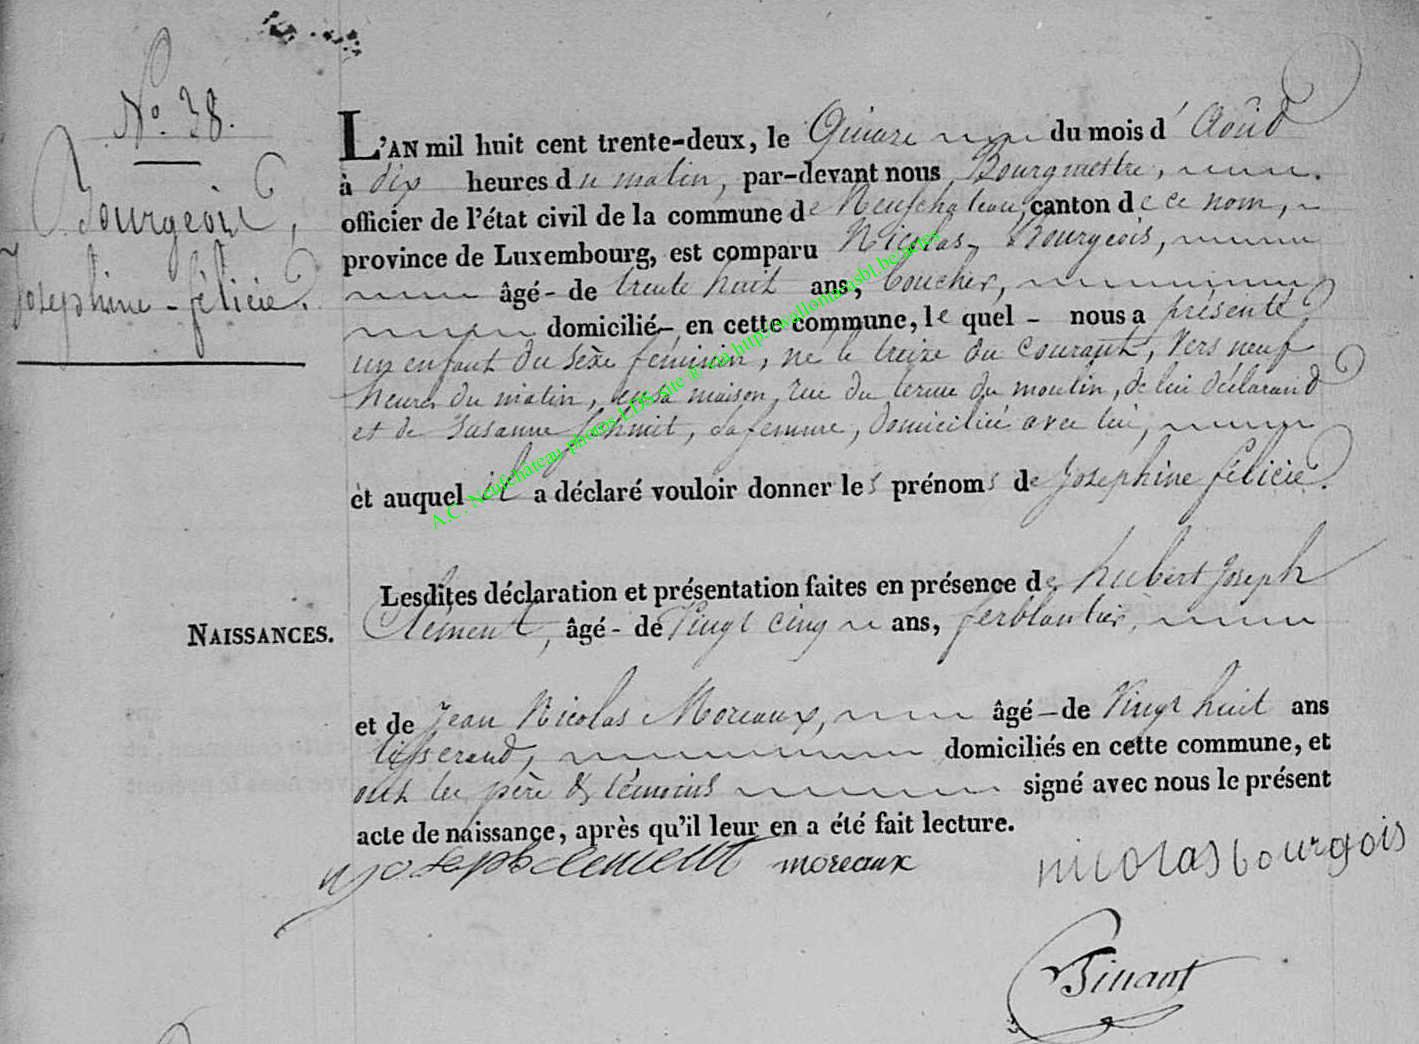 N.° 38.
Bourgeois,
Josephine-félicie.
L'AN mil huit cent trente-deux, le Quinze du mois d'Août
à dix heures du matin, par-devant nous Bourgmestre,
officier de l'état civil de la commune de Neufchateau, canton de ce nom,
province de Luxembourg, est comparu Nicolas Bourgeois,
âgé - de trente huit ans, boucher,
domicilié - en cette commune, lequel - nous a présenté
un enfant du sèxe féminin, né le treize du courant, vers neuf
heures du matin, en sa maison, rue du terme du moulin, de lui déclarand
et de Susanne Schmit, sa femme, domiciliée avec lui,
et auquel il a déclaré vouloir donner les prénoms de Josephine félicie.
Lesdites déclaration et présentation faites en présence de hubert Joseph
Clément, âgé - de Vingt cinq ans, ferblantier,
NAISSANCES.
et de Jean Nicolas Moreaux, âgé - de Vingt huit ans
tisserand, domiciliés en cette commune, et
ont les père & témoins signé avec nous le présent
acte de naissance, après qu'il leur en a été fait lecture.
hjosephclement moreaux nicolasbourgois
Binant
A.C. Neufchâteau photos LDS site @ via http://wallonia.asbl.be/actes